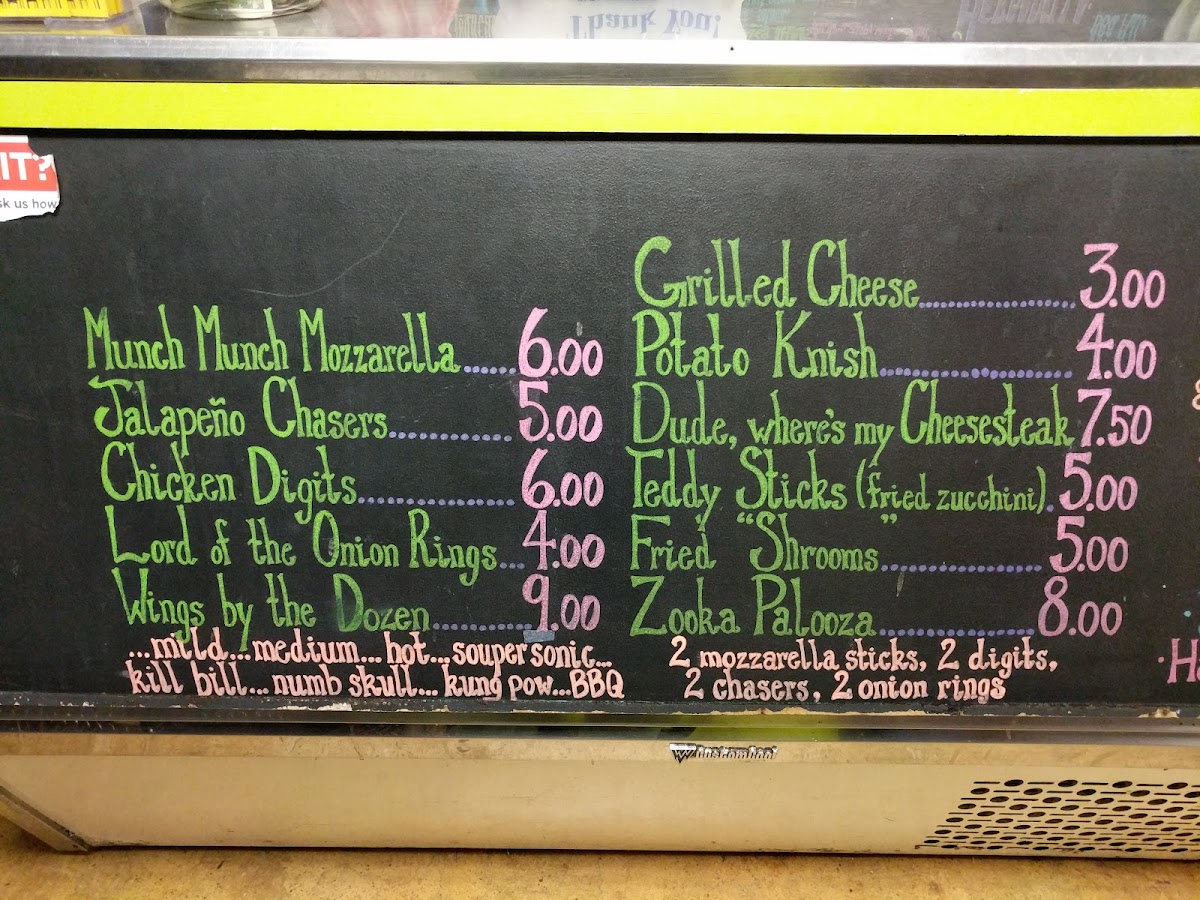 Thank you!
IT?
sk us how
Munch Munch Mozzarella.....6.00
Jalapeño Chasers............5.00
Chicken Digits...............6.00
Lord of the Onion Rings...4.00
Wings by the Dozen..........9.00
...mild...medium...hot...souper sonic...
kill bill...numb skull...kung pow...BBQ
Grilled Cheese...............3.00
Potato Knish..................4.00
Dude, where's my Cheesesteak 7.50
Teddy Sticks (fried zucchini).5.00
Fried "Shrooms"...............5.00
Zooka Palooza...............8.00
2 mozzarella sticks, 2 digits,
2 chasers, 2 onion rings